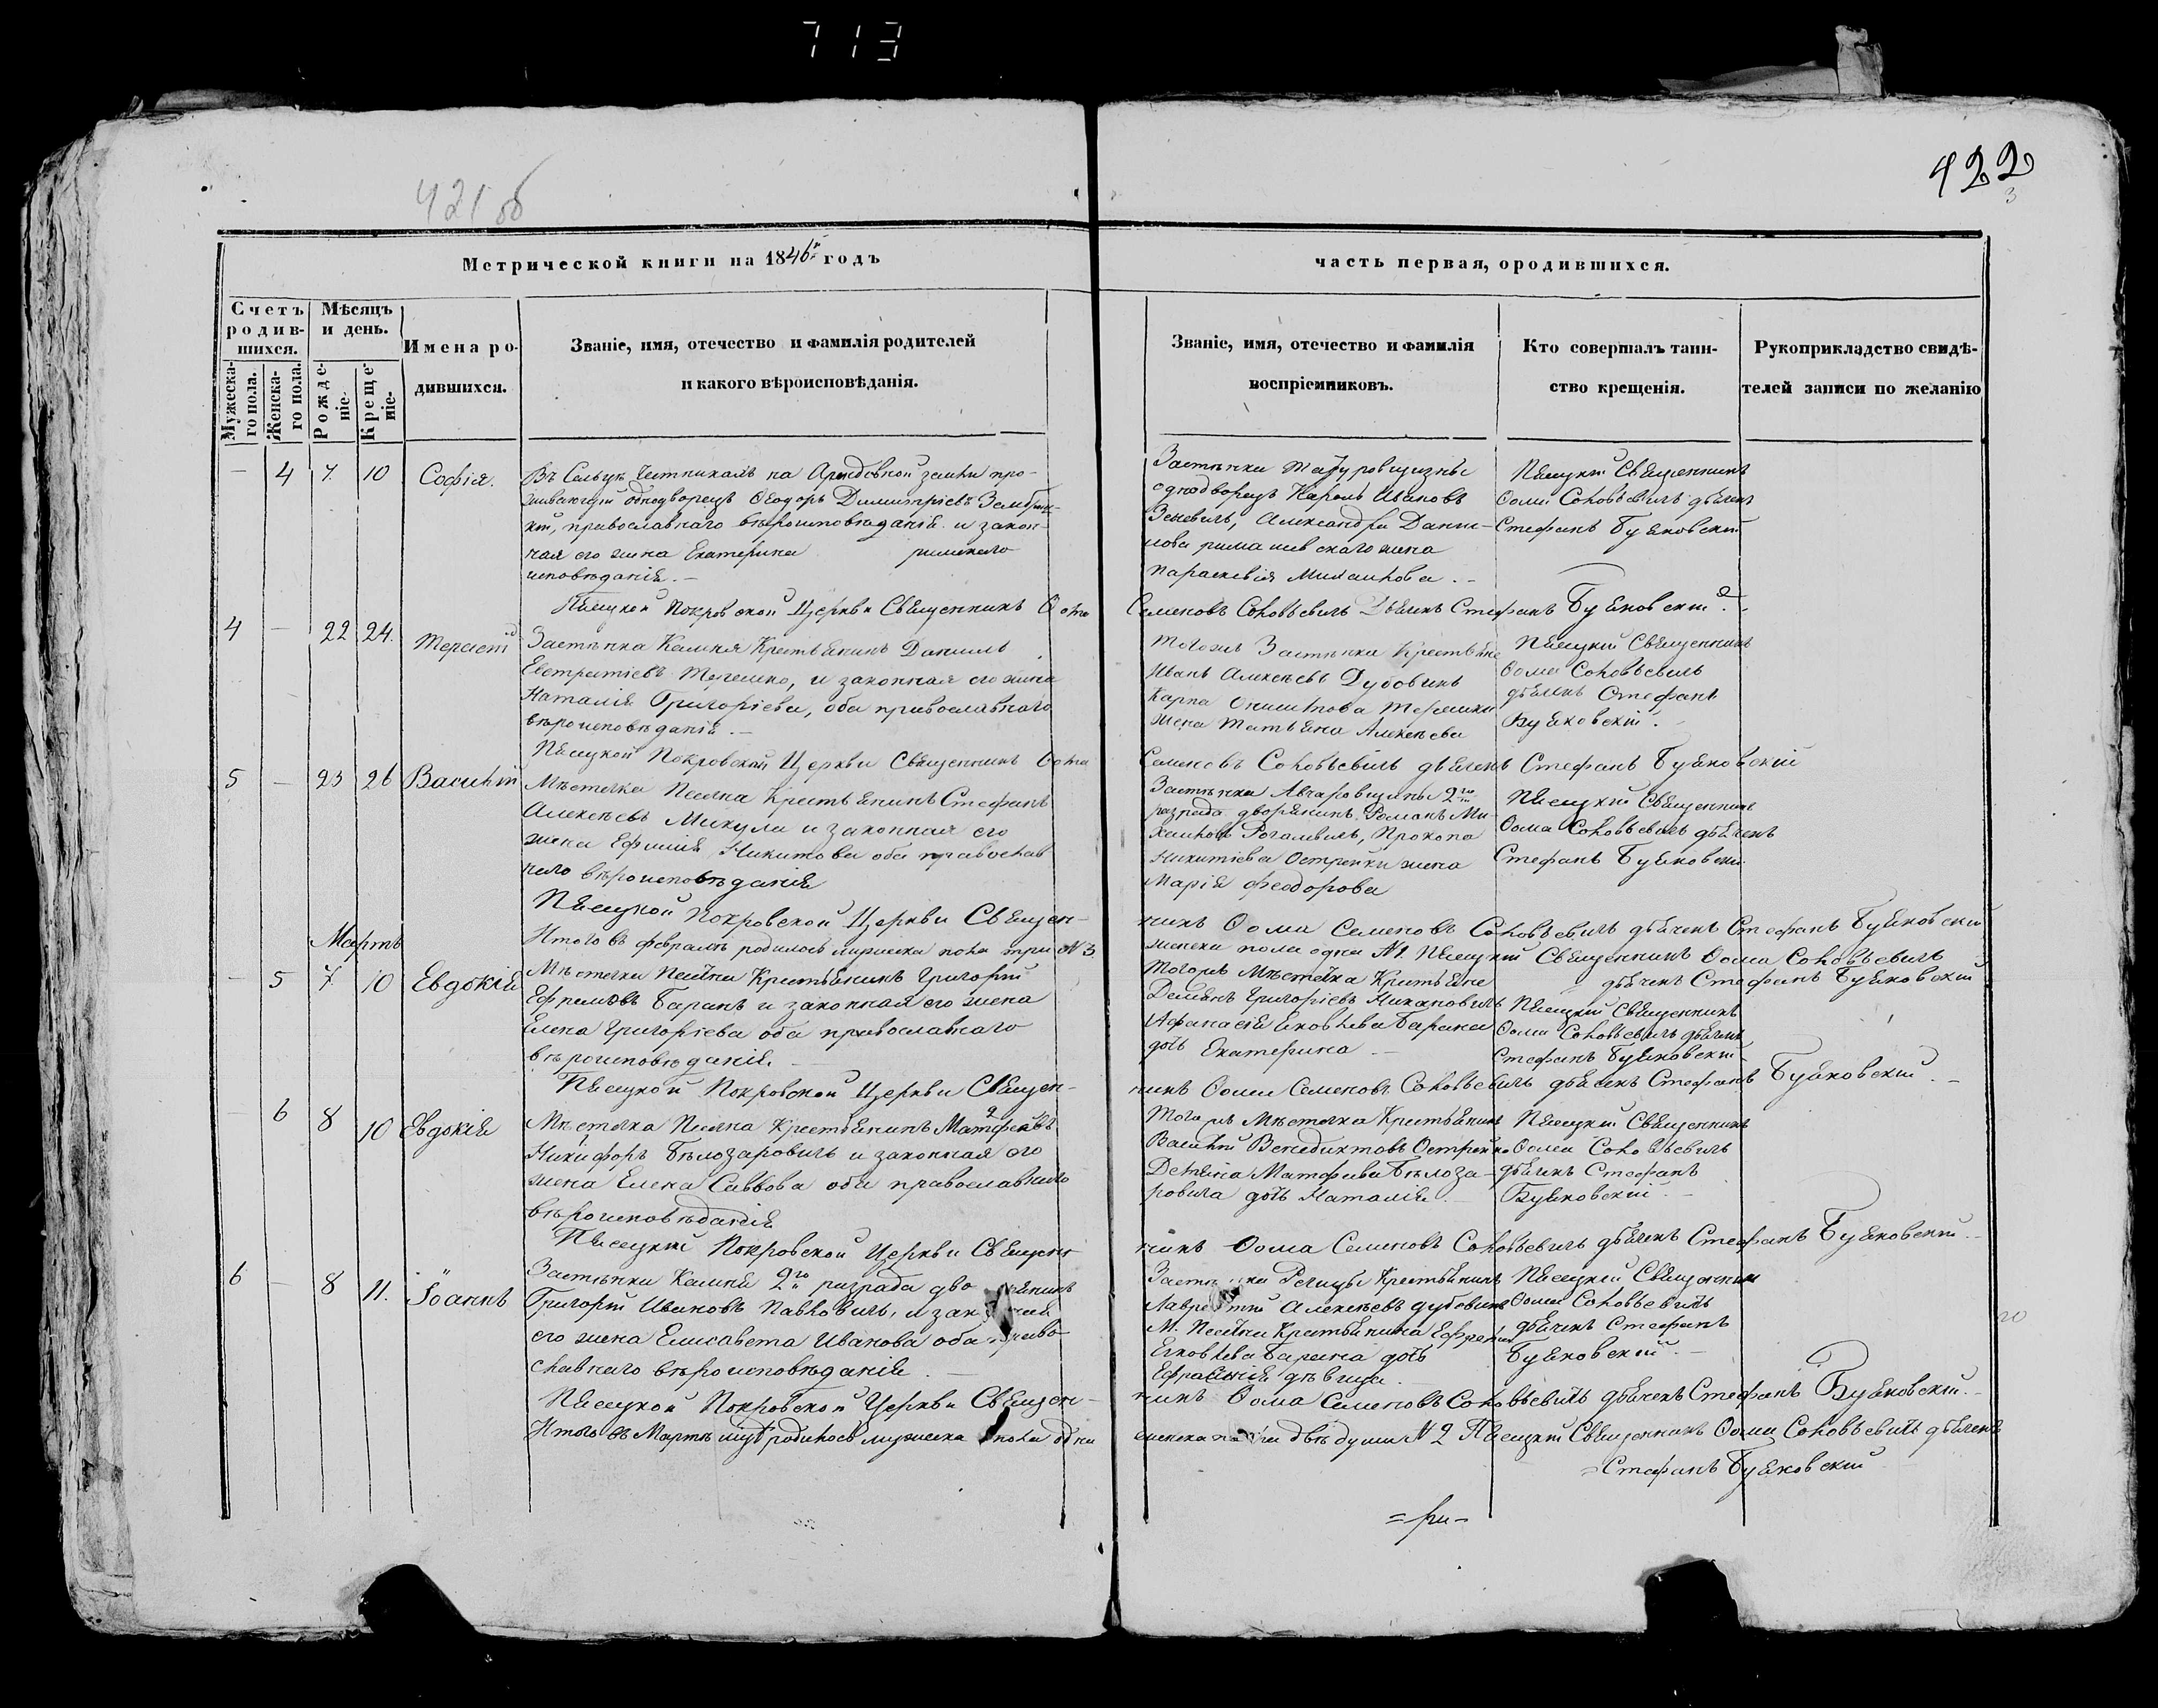 713
421 об
422
3
Метрической книги на 1846й годъ
часть первая, о родившихся.
Счетъ родив-
шихся.
Мужеска-
го пола.
Женска-
го пола.
Мѣсяцъ
и день.
Рожде-
ніе.
Креще-
ніе.
Имена ро-
дившихся.
Званіе, имя, отечество и фамилія родителей
и какого вѣроисповѣданія.
Званіе, имя, отечество и фамилія
воспріемниковъ.
Кто совершалъ таин-
ство крещенія.
Рукоприкладство свидѣ-
телей записи по желанію
— 4 7 10 Софія.
Въ Сельцѣ на земли про-
живающій однодворецъ Ѳеодоръ Димитріевъ
кій, православнаго вѣроисповѣданія и закон-
ная его жена Екатерина римскаго
исповѣданія. —
Застѣнка
однодворецъ Ивановъ
Александра
жена
Параскевія Михаилова. —
Пѣсецкій Священникъ
Ѳома Соловьевичъ дьячекъ
Стефанъ Буяковскій
Пѣсецкой Покровской Церкви Священникъ Ѳома Семеновъ Соловьевичъ Дьячекъ Стефанъ Буяковскій. —
4 — 22 24. Терентій
Застѣнка Калиня Крестьянинъ Даніилъ
Евстратіевъ Терешко, и законная его жена
Наталія Григоріева, оба православнаго
вѣроисповѣданія. —
Тогожъ Застѣнка Крестьяне
Иванъ Алексѣевъ Дубовикъ
Карпа Терешки
жена Татьяна Алексѣева
Пѣсецкій Священникъ
Ѳома Соловьевичъ
дьячекъ Стефанъ
Буяковскій.
Пѣсецкой Покровской Церкви Священникъ Ѳома Семеновъ Соловьевичъ дьячекъ Стефанъ Буяковскій
5 — 23 26 Василій
Мѣстечка Песѣчна Крестьянинъ Стефанъ
Алексѣевъ Микула и законная его
жена Ефимія Никитова оба православ
наго вѣроисповѣданія
Застѣнка 2го
разряда дворянинъ Романъ Ми-
хаиловъ Прокопа
Никитіева Острейки жена
Марія Феодорова
Пѣсецкій Священникъ
Ѳома Соловьевичъ дьячекъ
Стефанъ Буяковскій
Пѣсецкой Покровской Церкви Священ- никъ Ѳома Семеновъ Соловьевичъ дьячекъ Стефанъ Буяковскій
Итого въ февралѣ родилось мужеска пола три N 3 женска пола одна N 1. Пѣсецкій Священникъ Ѳома Соловьевичъ
дьячекъ Стефанъ Буяковскій
Мартъ
— 5 7 10 Евдокія
Мѣстечка Песѣчна Крестьянинъ Григорій
Ефремовъ Баранъ и законная его жена
Елена Григоріева оба православнаго
вѣроисповѣданія. —
Тогожъ Мѣстечка Крестьяне
Демьянъ Григоріевъ
Афанасія Яковлева Барана
дочь Екатерина —
Пѣсецкій Священникъ
Ѳома Соловьевичъ дьячекъ
Стефанъ Буяковскій
Пѣсецкой Покровской Церкви Священ- никъ Ѳома Семеновъ Соловьевичъ дьячекъ Стефанъ Буяковскій —
— 6 8 10 Евдокія
Мѣстечка Песѣчна Крестьянинъ Матфеевъ
Никифоръ Бѣлозаровичъ и законная его
жена Елена Саввова оба православнаго
вѣроисповѣданія
Тогожъ Мѣстечка Крестьянинъ
Василій Венедиктовъ Острейко
Демьяна Матфеева Бѣлоза-
ровича дочь Наталія.
Пѣсецкій Священникъ
Ѳома Соловьевичъ
дьячекъ Стефанъ
Буяковскій. —
Пѣсецкой Покровской Церкви Священ никъ Ѳома Семеновъ Соловьевичъ дьячекъ Стефанъ Буяковскій. —
6 — 8 11. Іоаннъ
Застѣнка Калиня 2го разряда дворянинъ
Григорій Ивановъ Павловичъ, и законная
его жена Елисавета Иванова оба право
славнаго вѣроисповѣданія. —
Застѣнка Крестьянинъ
Лаврентій Алексѣевъ Дубовикъ
М. Песѣчна Крестьянина Ефрема
Яковлева Барана дочь
дѣвица. —
Пѣсецкій Священникъ
Ѳома Соловьевичъ
дьячекъ Стефанъ
Буяковскій. —
Пѣсецкой Покровской Церкви Священ- никъ Ѳома Семеновъ Соловьевичъ дьячекъ Стефанъ Буяковскій. —
Итого въ Мартѣ родилось мужеска пола одна женска двѣ души N 2 Пѣсецкій Священникъ Ѳома Соловьевичъ дьячекъ
= Стефанъ Буяковскій